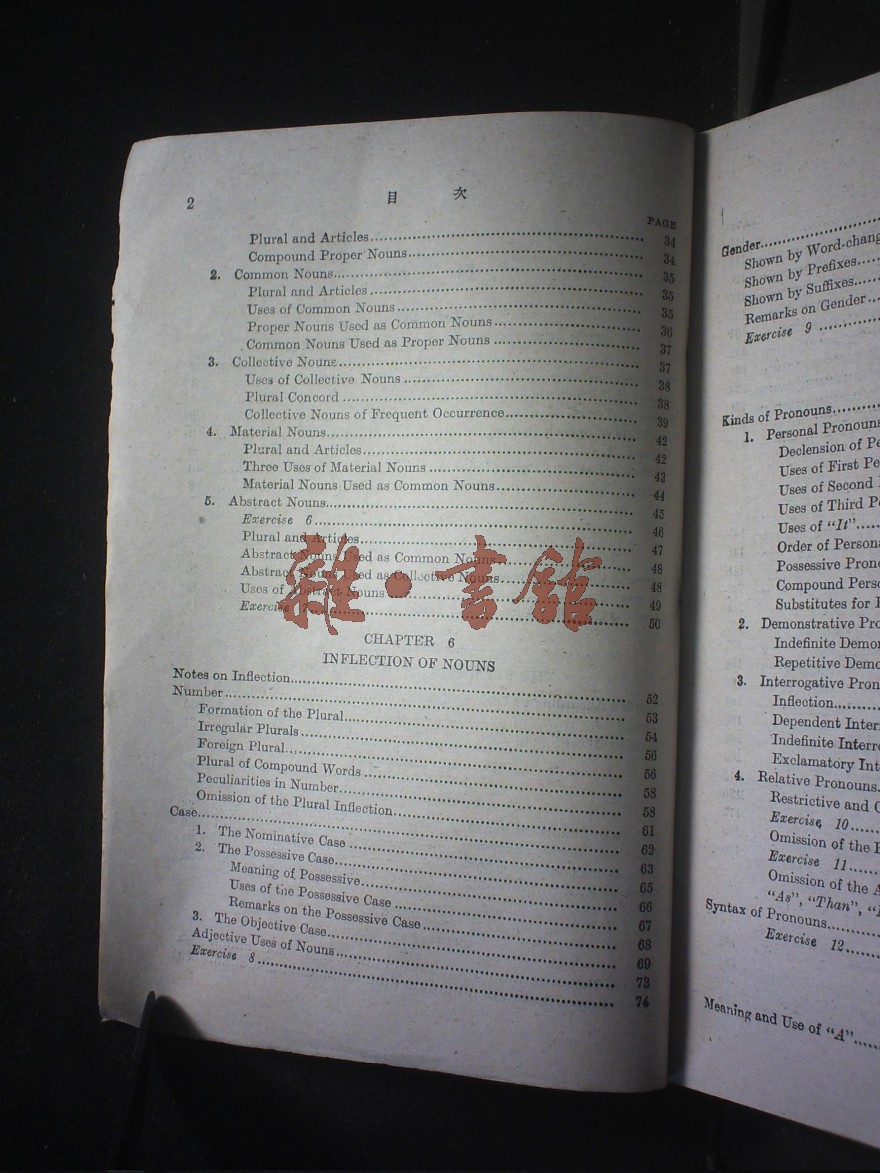 2 目 次
PAGE
Plural and Articles 34
Compound Proper Nouns 34
2. Common Nouns 35
Plural and Articles 35
Uses of Common Nouns 35
Proper Nouns Used as Common Nouns 36
Common Nouns Used as Proper Nouns 37
3. Collective Nouns 37
Uses of Collective Nouns 38
Plural Concord 38
Collective Nouns of Frequent Occurrence 39
4. Material Nouns 42
Plural and Articles 42
Three Uses of Material Nouns 43
Material Nouns Used as Common Nouns 44
5. Abstract Nouns 45
Exercise 6 46
Plural and Articles 47
Abstract Nouns Used as Common Nouns 48
Abstract Nouns Used as Collective Nouns 48
Uses of Abstract Nouns 49
Exercise 7 50
雜·書館
CHAPTER 6
INFLECTION OF NOUNS
Notes on Inflection 52
Number 53
Formation of the Plural 54
Irregular Plurals 56
Foreign Plural 56
Plural of Compound Words 58
Peculiarities in Number 58
Omission of the Plural Inflection 61
Case 62
1. The Nominative Case 63
2. The Possessive Case 65
Meaning of Possessive 66
Uses of the Possessive Case 67
Remarks on the Possessive Case 68
3. The Objective Case 69
Adjective Uses of Nouns 73
Exercise 8 74
Gender
Shown by Word-chang
Shown by Prefixes
Shown by Suffixes
Remarks on Gender
Exercise 9
Kinds of Pronouns
1. Personal Pronouns
Declension of Pe
Uses of First Pe
Uses of Second
Uses of Third Pe
Uses of "It"
Order of Persona
Possessive Pron
Compound Perso
Substitutes for
2. Demonstrative Pro
Indefinite Demo
Repetitive Demo
3. Interrogative Pron
Inflection
Dependent Inter
Indefinite Interr
Exclamatory Int
4. Relative Pronouns
Restrictive and
Exercise 10
Omission of the
Exercise 11
Omission of the A
"As", "Than",
Syntax of Pronouns
Exercise 12
Meaning and Use of "A"